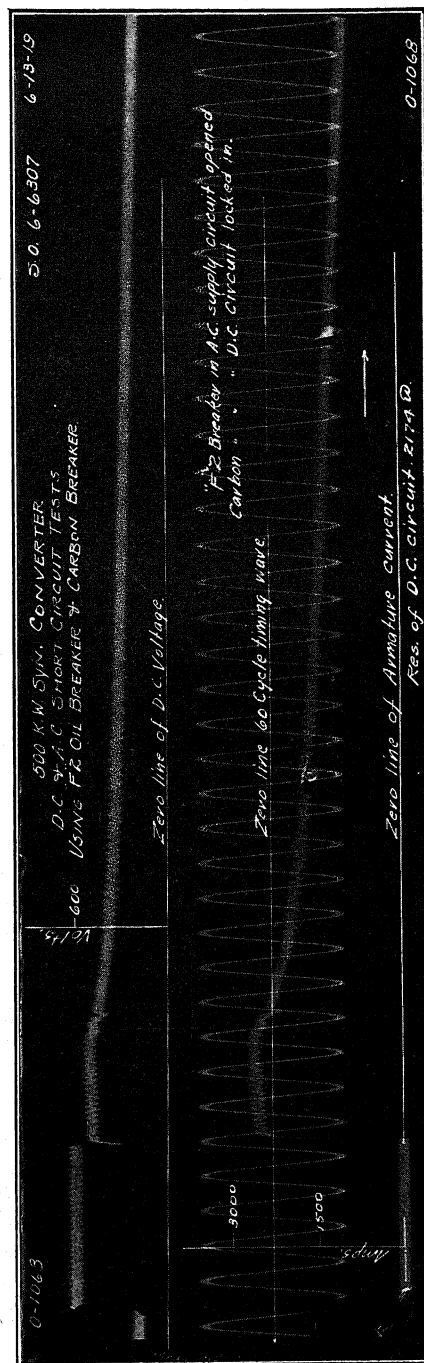 O-1063
S.O. 6-6307 6-13-19
500 KW SYN. CONVERTER
D.C & A.C. SHORT CIRCUIT TESTS
USING F2 OIL BREAKER & CARBON BREAKER
600
Volts.
Zero line of D.C. Voltage
"F2 Breaker in A.C. supply circuit opened
Carbon " " " D.C. Circuit locked in.
Zero line 60 Cycle timing wave
3000
1500
Amps.
Zero line of Armature current.
Res. of D.C. circuit .2174 Ω.
O-1068